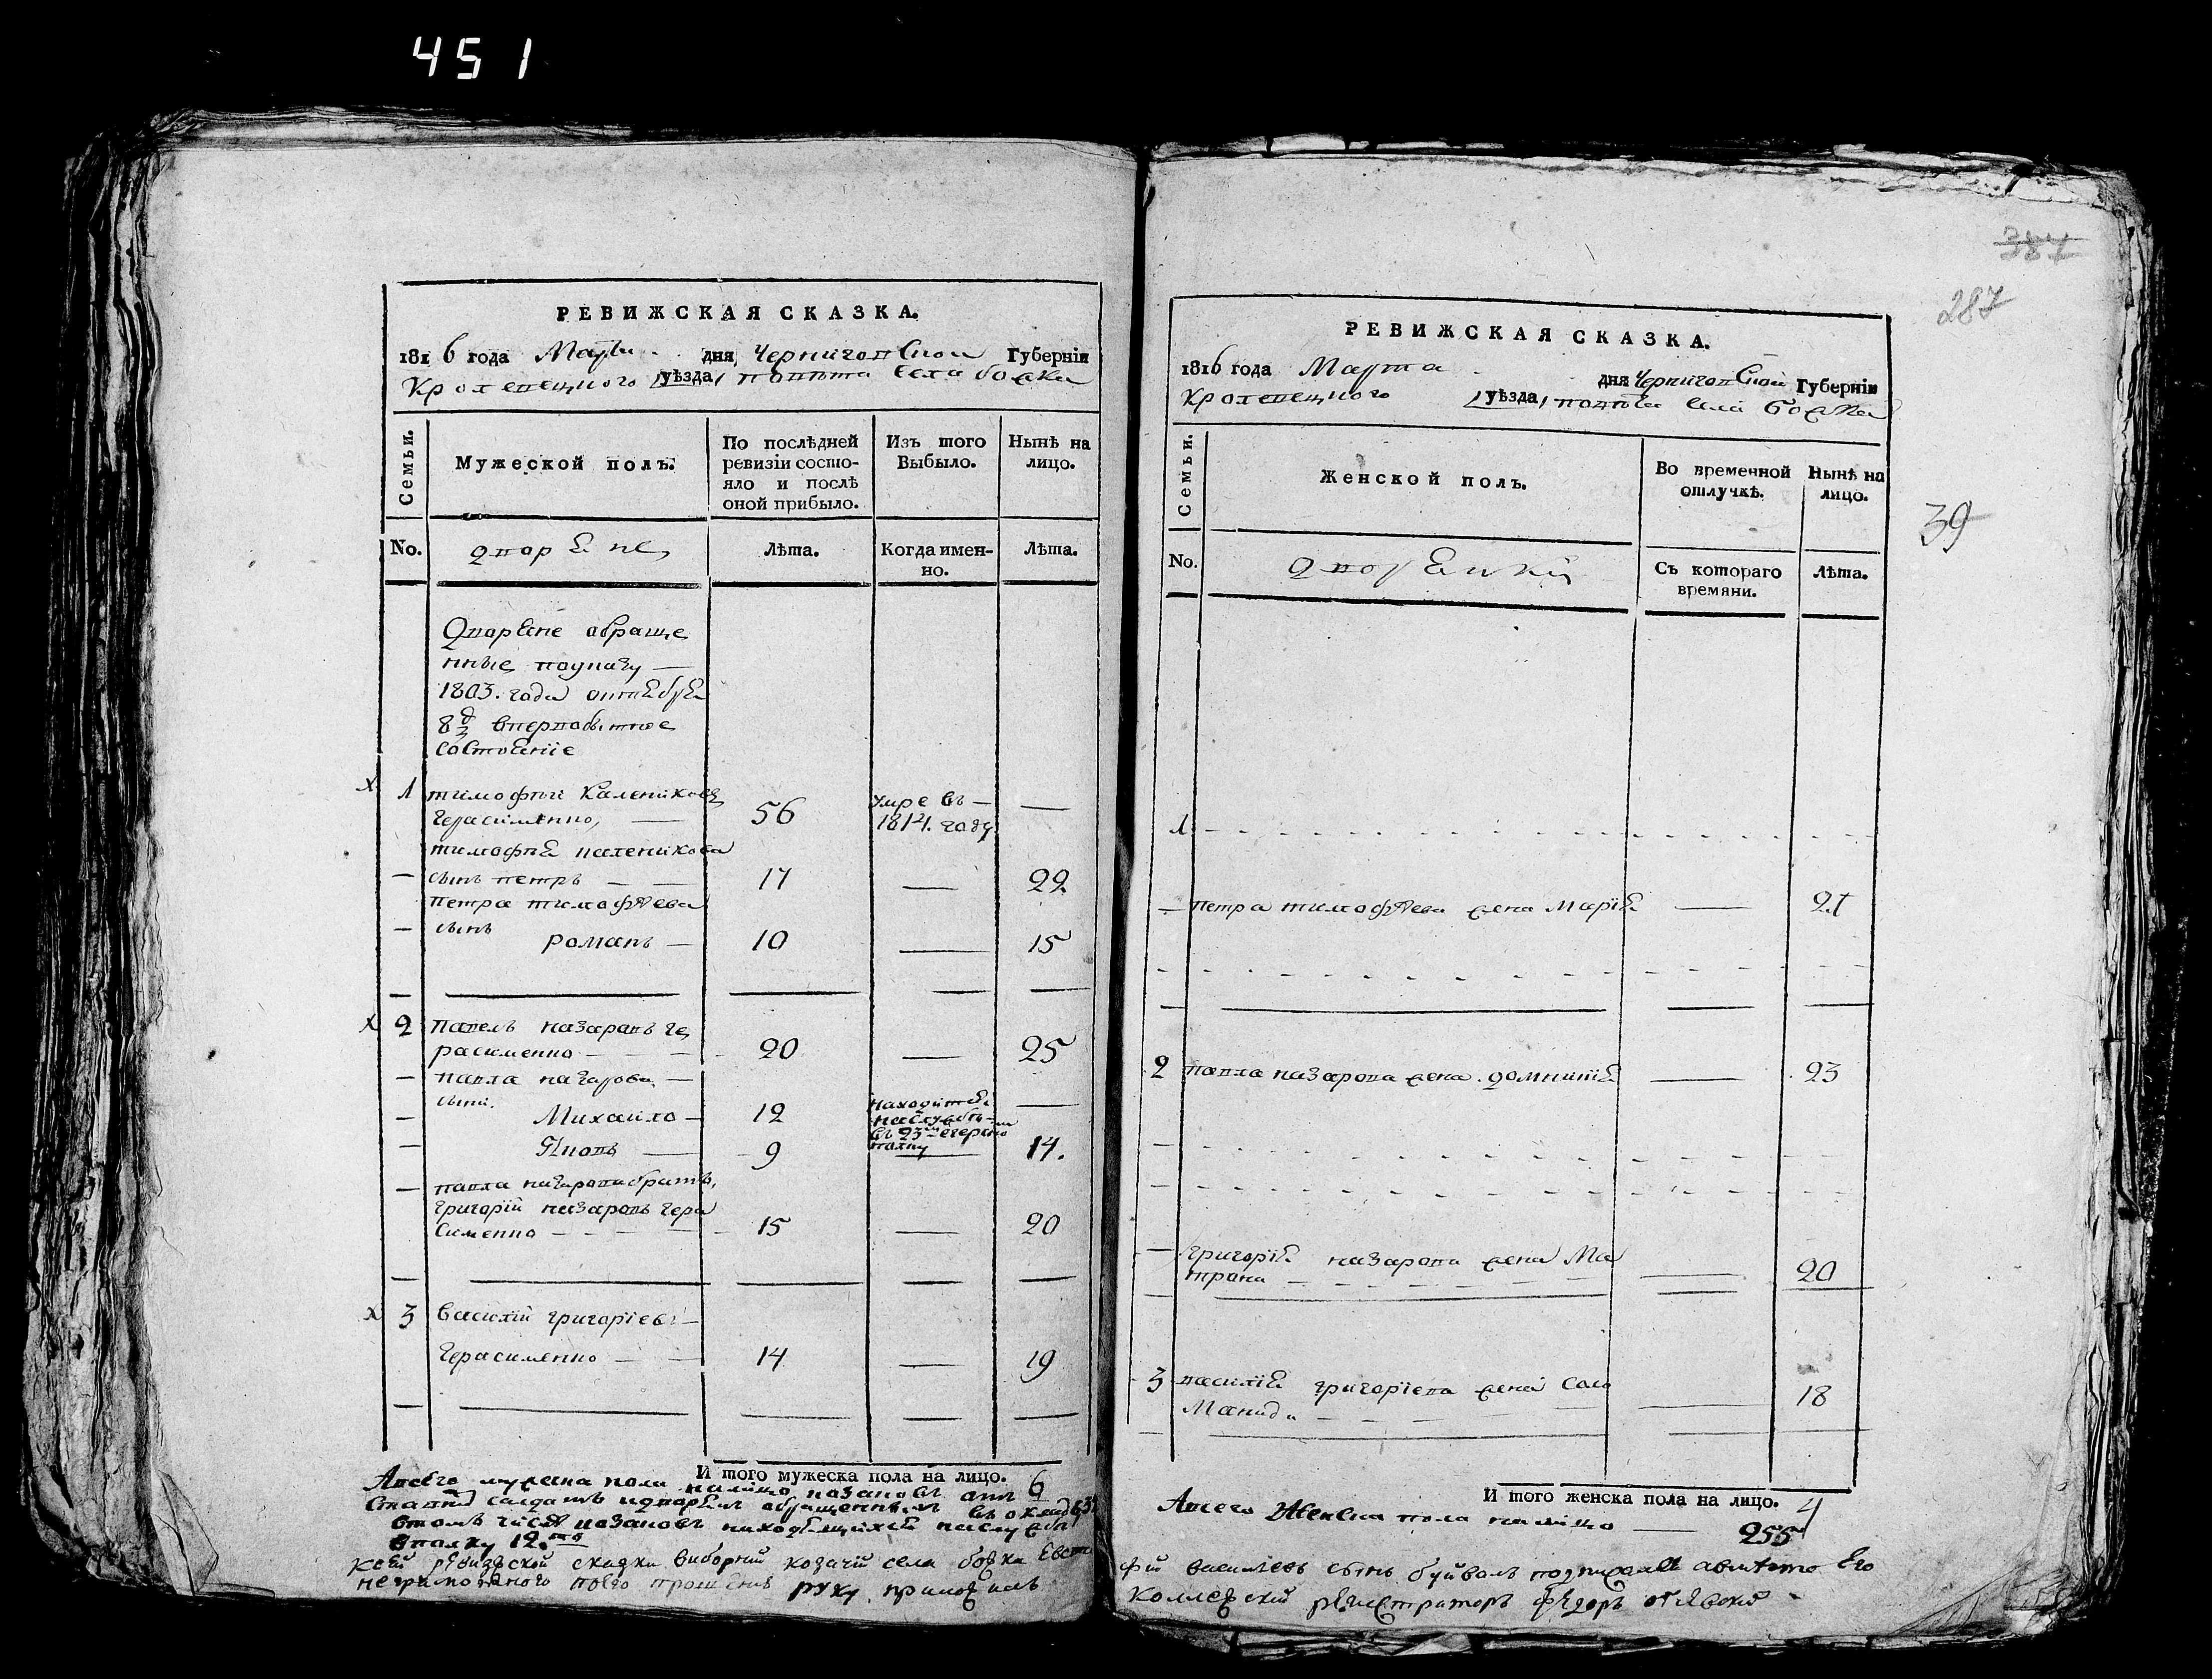 451
РЕВИЖСКАЯ СКАЗКА.
1816 года Марта дня Черниговской Губернiи
Кролевецкого уѣзда, повѣта села божка
Семьи.
Мужеской полъ.
По послѣдней ревизiи состо-
яло и послѣ
оной прибыло.
Изъ того
Выбыло.
Нынѣ на
лицо.
No.
дворяне
Лѣта.
Когда имен-
но.
Лѣта.
Дворяне обраще
нные поуказу —
1803. года октября
8 д вперво бытное
состоянiе
1 тимофѣй Калениковъ
герасименко, — 56 умре въ — 1814. году —
тимофѣя каленикова
— сынъ петръ — — 17 — 22
петра тимофѣева
— сынъ романъ — 10 — 15
2 Павелъ назаровъ ге
расименко — — — 20 — 25
— павла назарова —
сыни.
— Михайло — 12 находится на службѣ въ 23м егерско полку —
— Яковъ — 9 — 14.
— павла назарова братъ,
григорiй назаровъ гера
сименко — — — 15 — 20
3 василiй григорiевъ —
герасименко — — 14 — 19
И того мужеска пола на лицо. 6
Авсего мужеска пола налицо козаковъ
солдатъ идворянъ обращеннихъ въ окладъ
втомъ числѣ козаковъ находящихся наслужбѣ
вполку 12.
Ксей ревизской скаски виборний козачiй села божка Евста
неграмотного поего прошенiю руку приложилъ
387
287
39
РЕВИЖСКАЯ СКАЗКА.
1816 года Марта дня Черниговской Губернiи
Кролевецкого уѣзда, повѣта села божка
Семьи.
Женской полъ.
Во временной
отлучкѣ.
Нынѣ на
лицо.
No.
дворянки
Съ котораго
времяни.
Лѣта.
1.
— петра тимофѣева жена Марiя — 21
2 павла назарова жена домникiя — 23
— григорiя назарова жена Ма
трона — — — 20
3 василiя григорiева жена соло
Манида — — — 18
И того женска пола на лицо. 4
Авсего Женска пола налицо — 255
фiй василiевъ сынъ буйвалъ подписалъ авмѣсто Его
Коллежский регистраторъ Федоръ